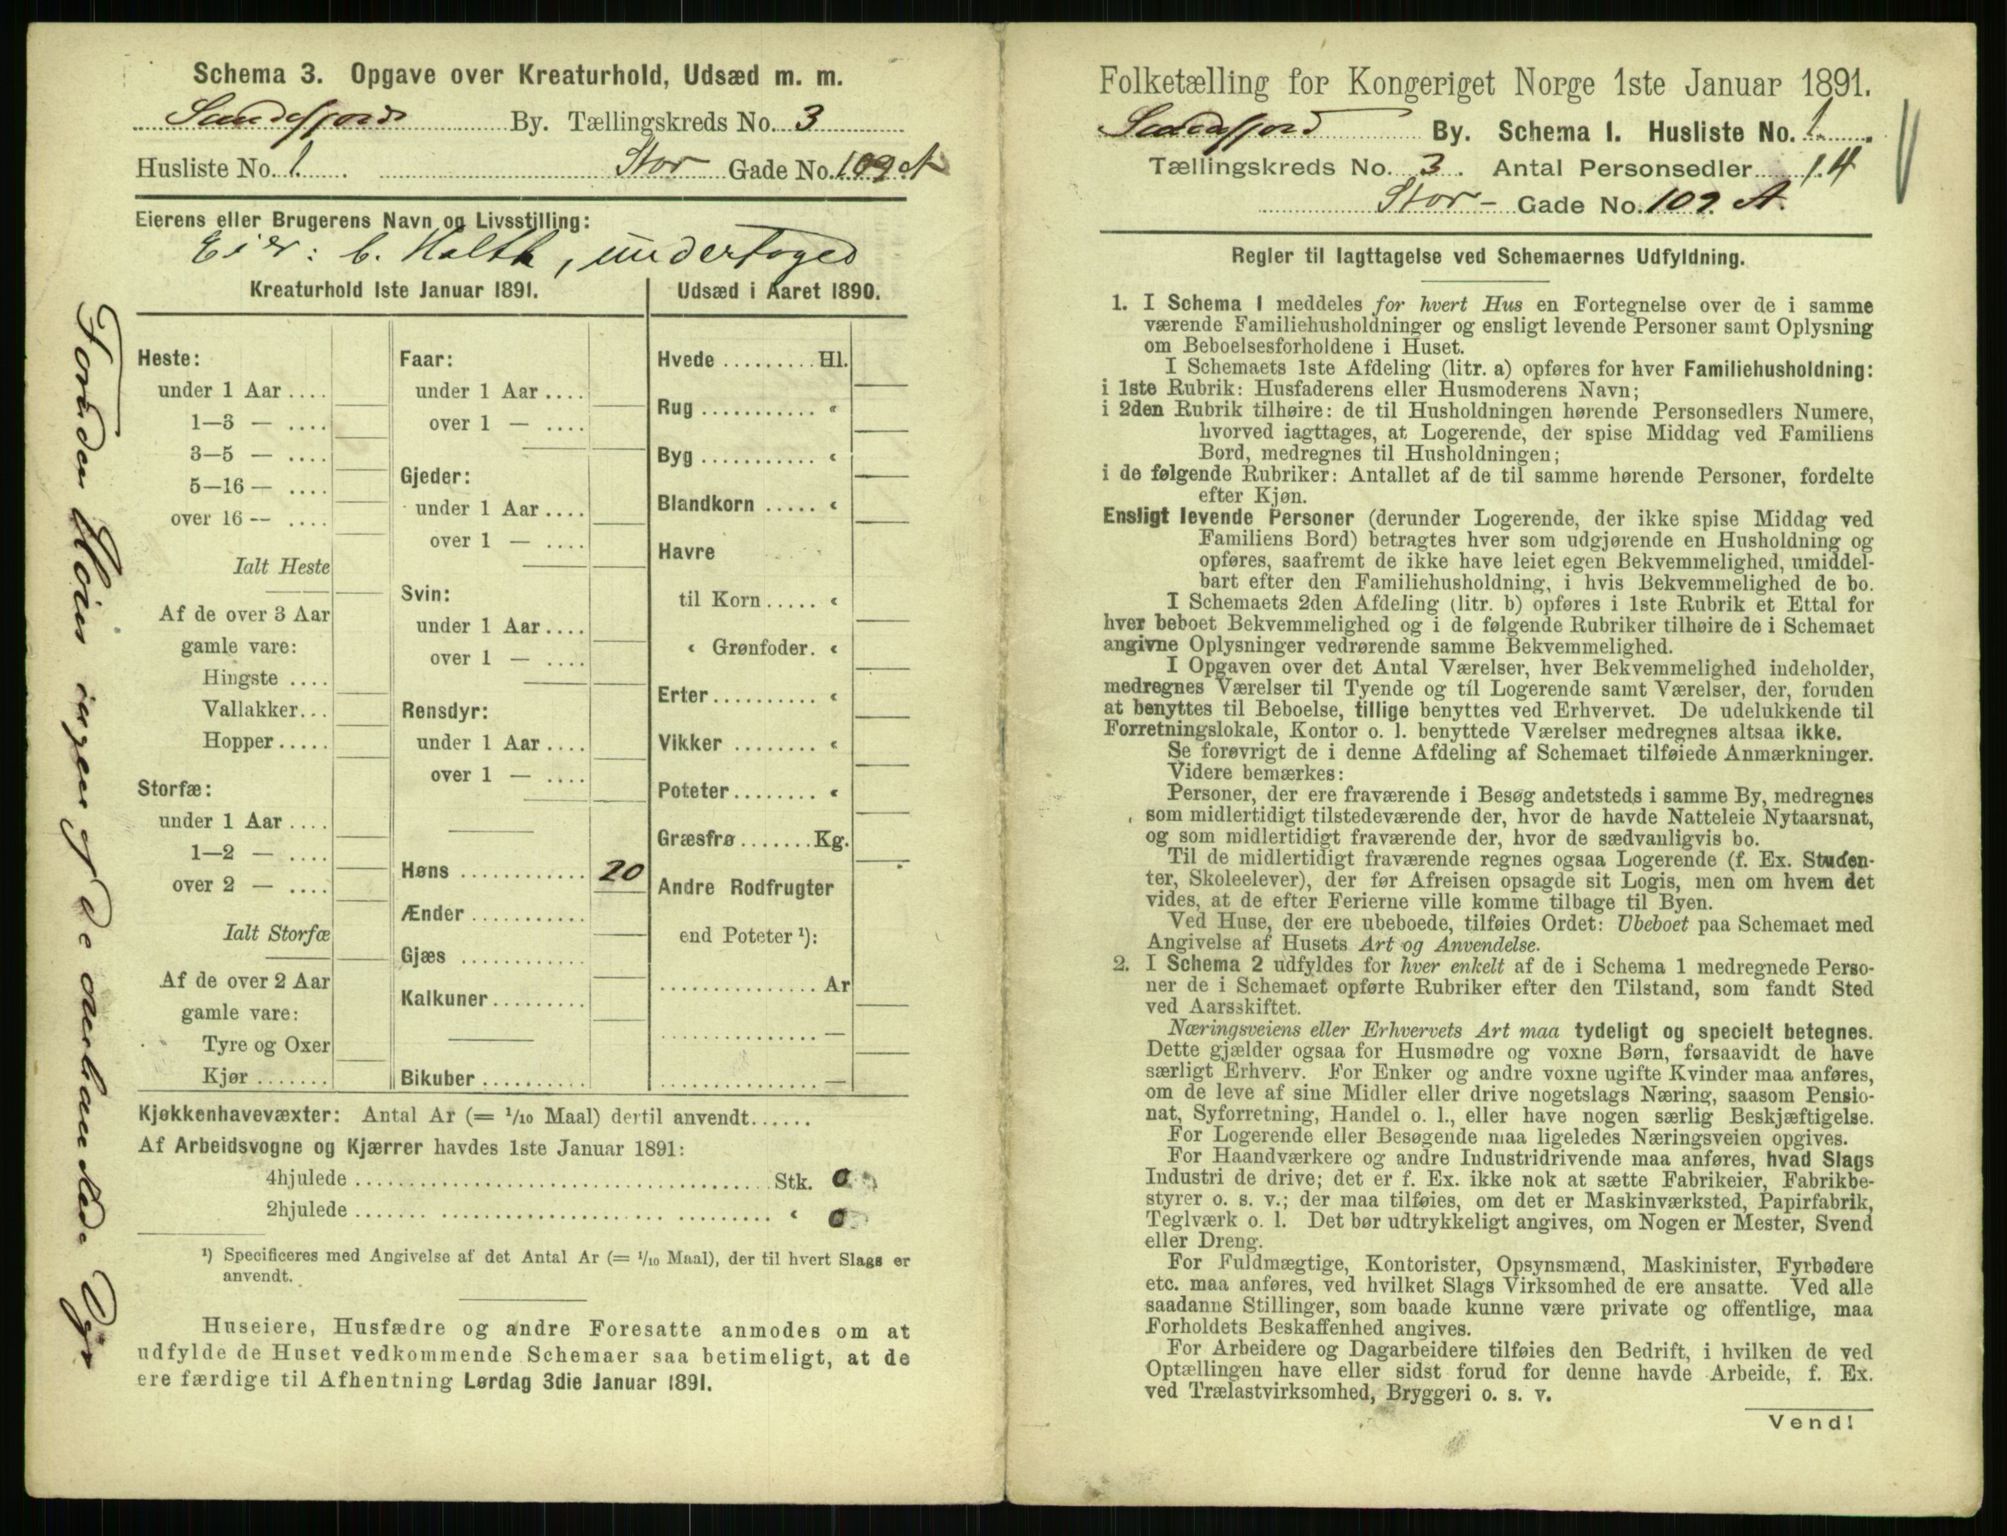 Schema 3. Opgave over Kreaturhold, Udsæd m. m.
Sandefjord By. Tællingskreds No. 3
Husliste No. 1. Stor Gade No. 109 A
Eierens eller Brugerens Navn og Livsstilling:
Eier: C. Holth,
Kreaturhold 1ste Januar 1891.
Heste:
under 1 Aar ....
1—3 — ....
3—5 — ....
5—16 — ....
over 16 — ....
Ialt Heste
Af de over 3 Aar
gamle vare:
Hingste ....
Vallakker...
Hopper.....
Storfæ:
under 1 Aar ....
1—2 — ....
over 2 — ....
Ialt Storfæ
Af de over 2 Aar
gamle vare:
Tyre og Oxer
Kjør .......
Faar:
under 1 Aar ....
over 1 — ....
Gjeder:
under 1 Aar....
over 1 — ....
Svin:
under 1 Aar....
over 1 — ....
Rensdyr:
under 1 Aar....
over 1 — ....
Høns ............ 20
Ænder ...........
Gjæs ............
Kalkuner.........
Bikuber ..........
Udsæd i Aaret 1890.
Hvede ......... Hl.
Rug ........... "
Byg ........... "
Blandkorn ..... "
Havre
til Korn ..... "
" Grønfoder. "
Erter.......... "
Vikker ........ "
Poteter........ "
Græsfrø....... Kg.
Andre Rodfrugter
end Poteter ¹):
............... Ar
............... —
............... —
Kjøkkenhavevæxter: Antal Ar (= 1/10 Maal) dertil anvendt......
Af Arbeidsvogne og Kjærrer havdes 1ste Januar 1891:
4hjulede ........................................ Stk. 0
2hjulede ........................................ " 0
¹) Specificeres med Angivelse af det Antal Ar (= 1/10 Maal), der til hvert Slags er
anvendt.
Huseiere, Husfædre og andre Foresatte anmodes om at
udfylde de Huset vedkommende Schemaer saa betimeligt, at de
ere færdige til Afhentning Lørdag 3die Januar 1891.
Foruden Høns ingen af de omhandlede Dyr
Folketælling for Kongeriget Norge 1ste Januar 1891.
Sandefjord By. Schema 1. Husliste No. 1.
Tællingskreds No. 3. Antal Personsedler 14
Stor- Gade No. 109 A.
Regler til Iagttagelse ved Schemaernes Udfyldning.
1. I Schema 1 meddeles for hvert Hus en Fortegnelse over de i samme
værende Familiehusholdninger og ensligt levende Personer samt Oplysning
om Beboelsesforholdene i Huset.
I Schemaets 1ste Afdeling (litr. a) opføres for hver Familiehusholdning:
i 1ste Rubrik: Husfaderens eller Husmoderens Navn;
i 2den Rubrik tilhøire: de til Husholdningen hørende Personsedlers Numere,
hvorved iagttages, at Logerende, der spise Middag ved Familiens
Bord, medregnes til Husholdningen;
i de følgende Rubriker: Antallet af de til samme hørende Personer, fordelte
efter Kjøn.
Ensligt levende Personer (derunder Logerende, der ikke spise Middag ved
Familiens Bord) betragtes hver som udgjørende en Husholdning og
opføres, saafremt de ikke have leiet egen Bekvemmelighed, umiddel-
bart efter den Familiehusholdning, i hvis Bekvemmelighed de bo.
I Schemaets 2den Afdeling (litr. b) opføres i 1ste Rubrik et Ettal for
hver beboet Bekvemmelighed og i de følgende Rubriker tilhøire de i Schemaet
angivne Oplysninger vedrørende samme Bekvemmelighed.
I Opgaven over det Antal Værelser, hver Bekvemmelighed indeholder,
medregnes Værelser til Tyende og til Logerende samt Værelser, der, foruden
at benyttes til Beboelse, tillige benyttes ved Erhvervet. De udelukkende til
Forretningslokale, Kontor o. l. benyttede Værelser medregnes altsaa ikke.
Se forøvrigt de i denne Afdeling af Schemaet tilføiede Anmærkninger.
Videre bemærkes:
Personer, der ere fraværende i Besøg andetsteds i samme By, medregnes
som midlertidigt tilstedeværende der, hvor de havde Natteleie Nytaarsnat,
og som midlertidigt fraværende der, hvor de sædvanligvis bo.
Til de midlertidigt fraværende regnes ogsaa Logerende (f. Ex. Studen-
ter, Skoleelever), der før Afreisen opsagde sit Logis, men om hvem det
vides, at de efter Ferierne ville komme tilbage til Byen.
Ved Huse, der ere ubeboede, tilføies Ordet: Ubeboet paa Schemaet med
Angivelse af Husets Art og Anvendelse.
2. I Schema 2 udfyldes for hver enkelt af de i Schema 1 medregnede Perso-
ner de i Schemaet opførte Rubriker efter den Tilstand, som fandt Sted
ved Aarsskiftet.
Næringsveiens eller Erhvervets Art maa tydeligt og specielt betegnes.
Dette gjælder ogsaa for Husmødre og voxne Børn, forsaavidt de have
særligt Erhverv. For Enker og andre voxne ugifte Kvinder maa anføres,
om de leve af sine Midler eller drive nogetslags Næring, saasom Pensio-
nat, Syforretning, Handel o. l., eller have nogen særlig Beskjæftigelse.
For Logerende eller Besøgende maa ligeledes Næringsveien opgives.
For Haandværkere og andre Industridrivende maa anføres, hvad Slags
Industri de drive; det er f. Ex. ikke nok at sætte Fabrikeier, Fabrikbe-
styrer o. s. v.; der maa tilføies, om det er Maskinværksted, Papirfabrik,
Teglværk o. l. Det bør udtrykkeligt angives, om Nogen er Mester, Svend
eller Dreng.
For Fuldmægtige, Kontorister, Opsynsmænd, Maskinister, Fyrbødere
etc. maa anføres, ved hvilket Slags Virksomhed de ere ansatte. Ved alle
saadanne Stillinger, som baade kunne være private og offentlige, maa
Forholdets Beskaffenhed angives.
For Arbeidere og Dagarbeidere tilføies den Bedrift, i hvilken de ved
Optællingen have eller sidst forud for denne havde Arbeide, f. Ex.
ved Trælastvirksomhed, Bryggeri o. s. v.
Vend!